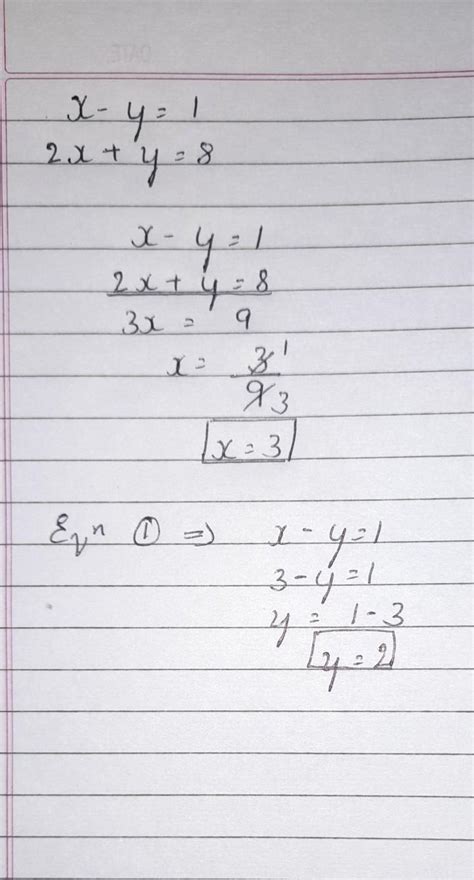 DATE
x - y = 1
2x + y = 8
x - y = 1
2x + y = 8
3x = 9
x = 3 1
9 3
x = 3
Eqⁿ ① ⇒ x - y = 1
3 - y = 1
y = 1 - 3
y = 2